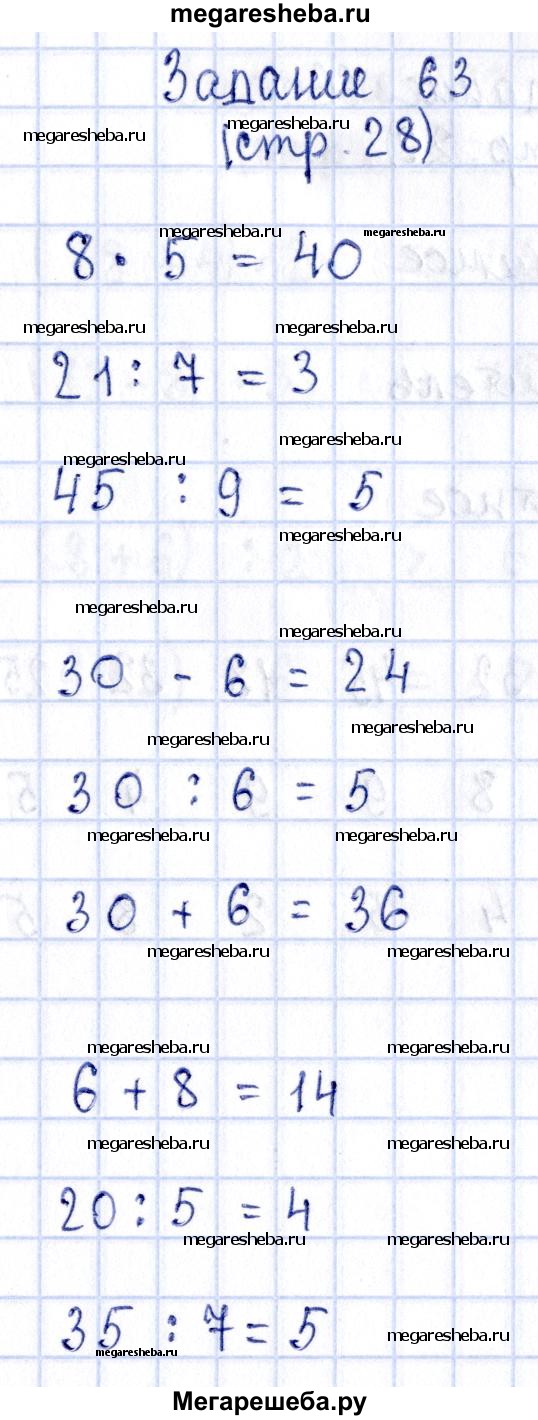 megaresheba.ru
Задание 63
megaresheba.ru megaresheba.ru
(стр. 28)
megaresheba.ru megaresheba.ru
8 · 5 = 40
megaresheba.ru megaresheba.ru
21 : 7 = 3
megaresheba.ru
megaresheba.ru
45 : 9 = 5
megaresheba.ru
megaresheba.ru
megaresheba.ru
30 - 6 = 24
megaresheba.ru
megaresheba.ru
30 : 6 = 5
megaresheba.ru megaresheba.ru
30 + 6 = 36
megaresheba.ru megaresheba.ru
megaresheba.ru megaresheba.ru
6 + 8 = 14
megaresheba.ru megaresheba.ru
20 : 5 = 4
megaresheba.ru megaresheba.ru
35 : 7 = 5
megaresheba.ru
megaresheba.ru
Мегарешеба.ру